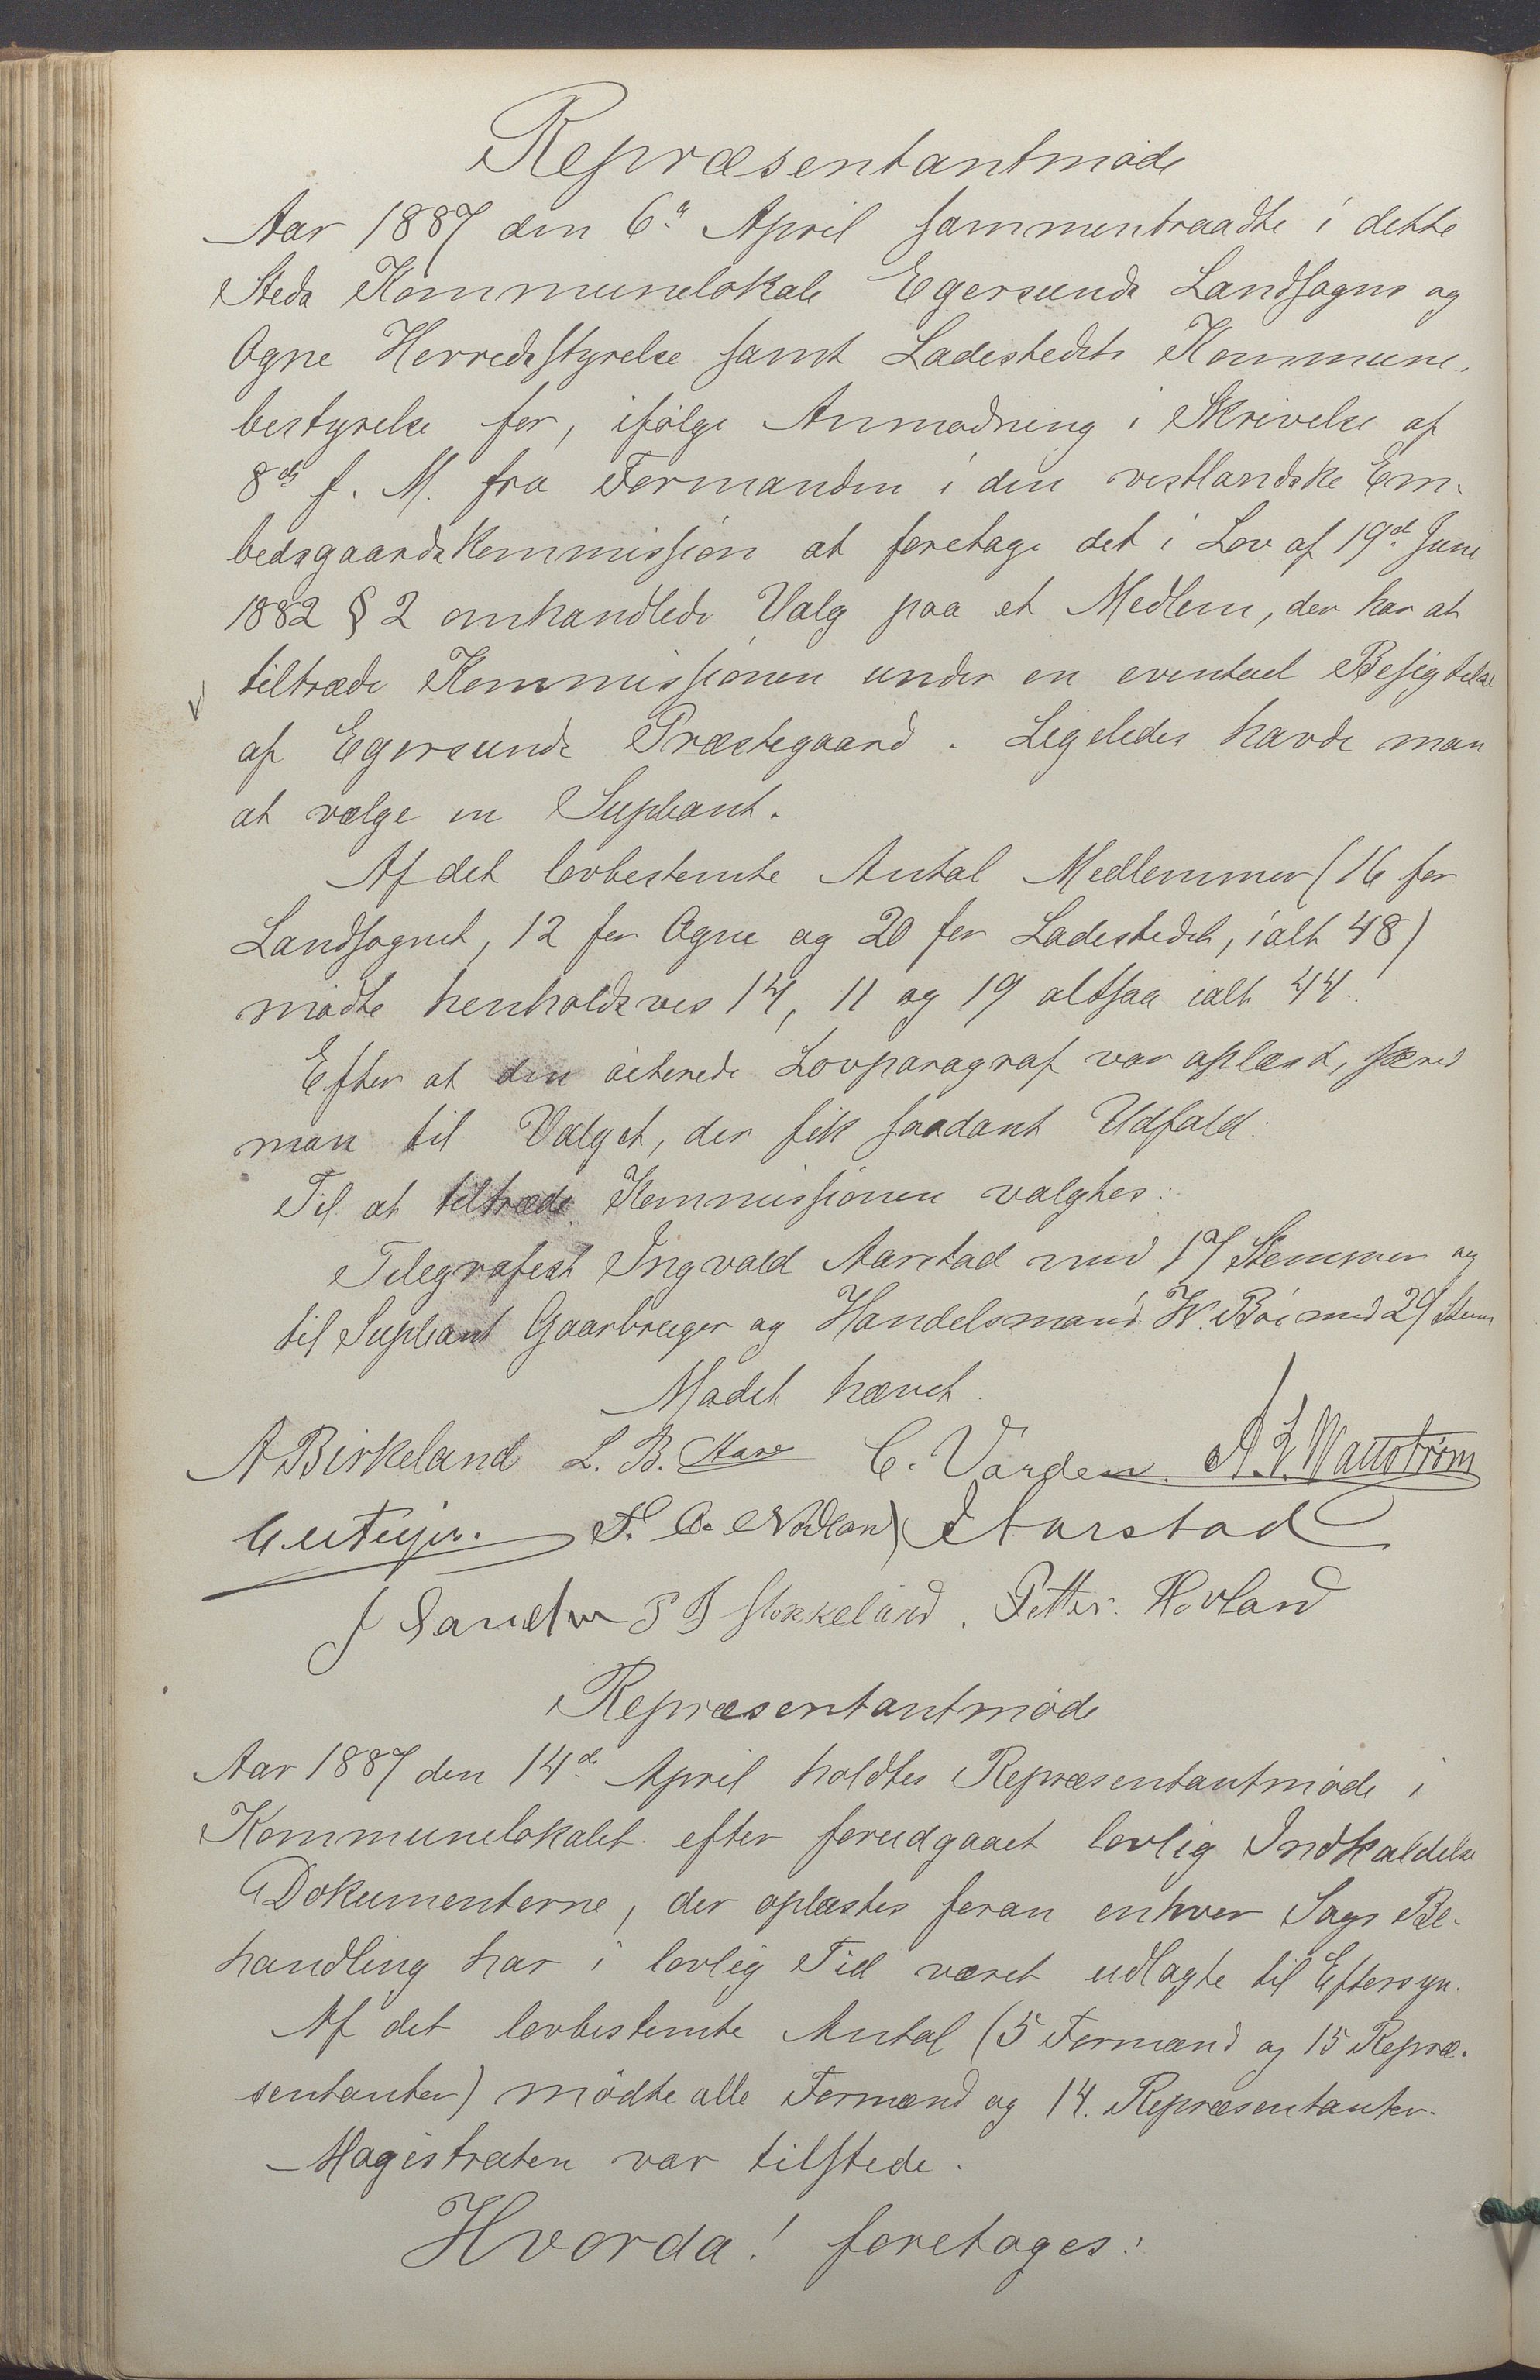 Repræsentantmöde
Aar 1887 den 6d April sammentraadte i dette
Steds Kommunelokale Egersunds Landsogns og
Ogne Herredsstyrelse samt Ladestedets Kommune-
bestyrelse for, ifölge Anmodning i Skrivelse af
8de f. M. fra Formanden i den vestlandske Em-
bedsgaardskommission at foretage det i Lov af 19d Juni
1882 § 2 omhandlede Valg paa et Medlem, der har at
tiltræde Kommissionen under en eventuel Besigtelse
af Egersunds Præstegaard. Ligeledes havde man
at vælge en Supleant.
Af det lovbestemte Antal Medlemmer (16 for
Landsognet, 12 for Ogne og 20 for Ladestedet, ialt 48)
mödte henholdsvis 14, 11 og 19 altsaa ialt 44.
Efter at den citerede Lovparagraf var oplæst, skred
man til Valget, der fik saadant Udfald:
Til at tiltræde Kommissionen valgtes:
Telegrafist Ingvald Aarstad med 17 Stemmer og
til Supleant Gaarbruger og Handelsmand W. Böe med 29 Stem
Mödet hævet.
A Birkeland L. B. C. Varden.
F. O. Nodland I Aarstad
Stokkeland. Petter Hovland
Repræsentantmöde
Aar 1887 den 14de April holdtes Repræsentantmöde i
Kommunelokalet efter forudgaaet lovlig Indkaldelse
Dokumenterne, der oplæstes foran enhver Sags Be-
handling har i lovlig Tid været udlagte til Eftersyn.
Af det lovbestemte Antal (5 Formænd og 15 Repræ-
sentanter) mödte alle Formænd og 14. Repræsentanter.
Magistraten var tilstede.
Hvorda! foretages: